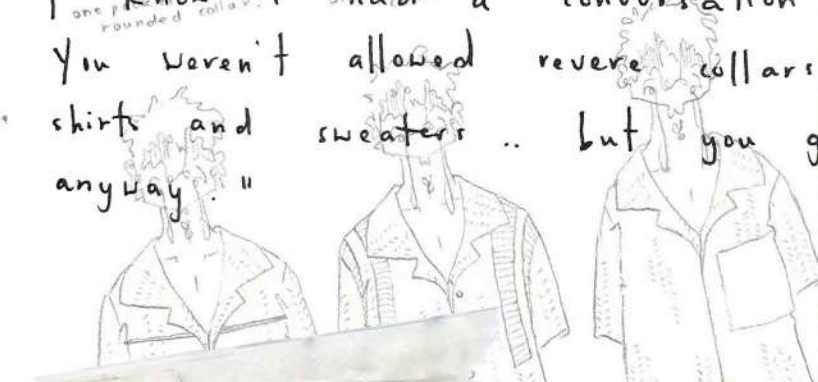 one
rounded collar.
had a
You weren't allowed revere collars
shirts and sweaters .. but you g
anyway."